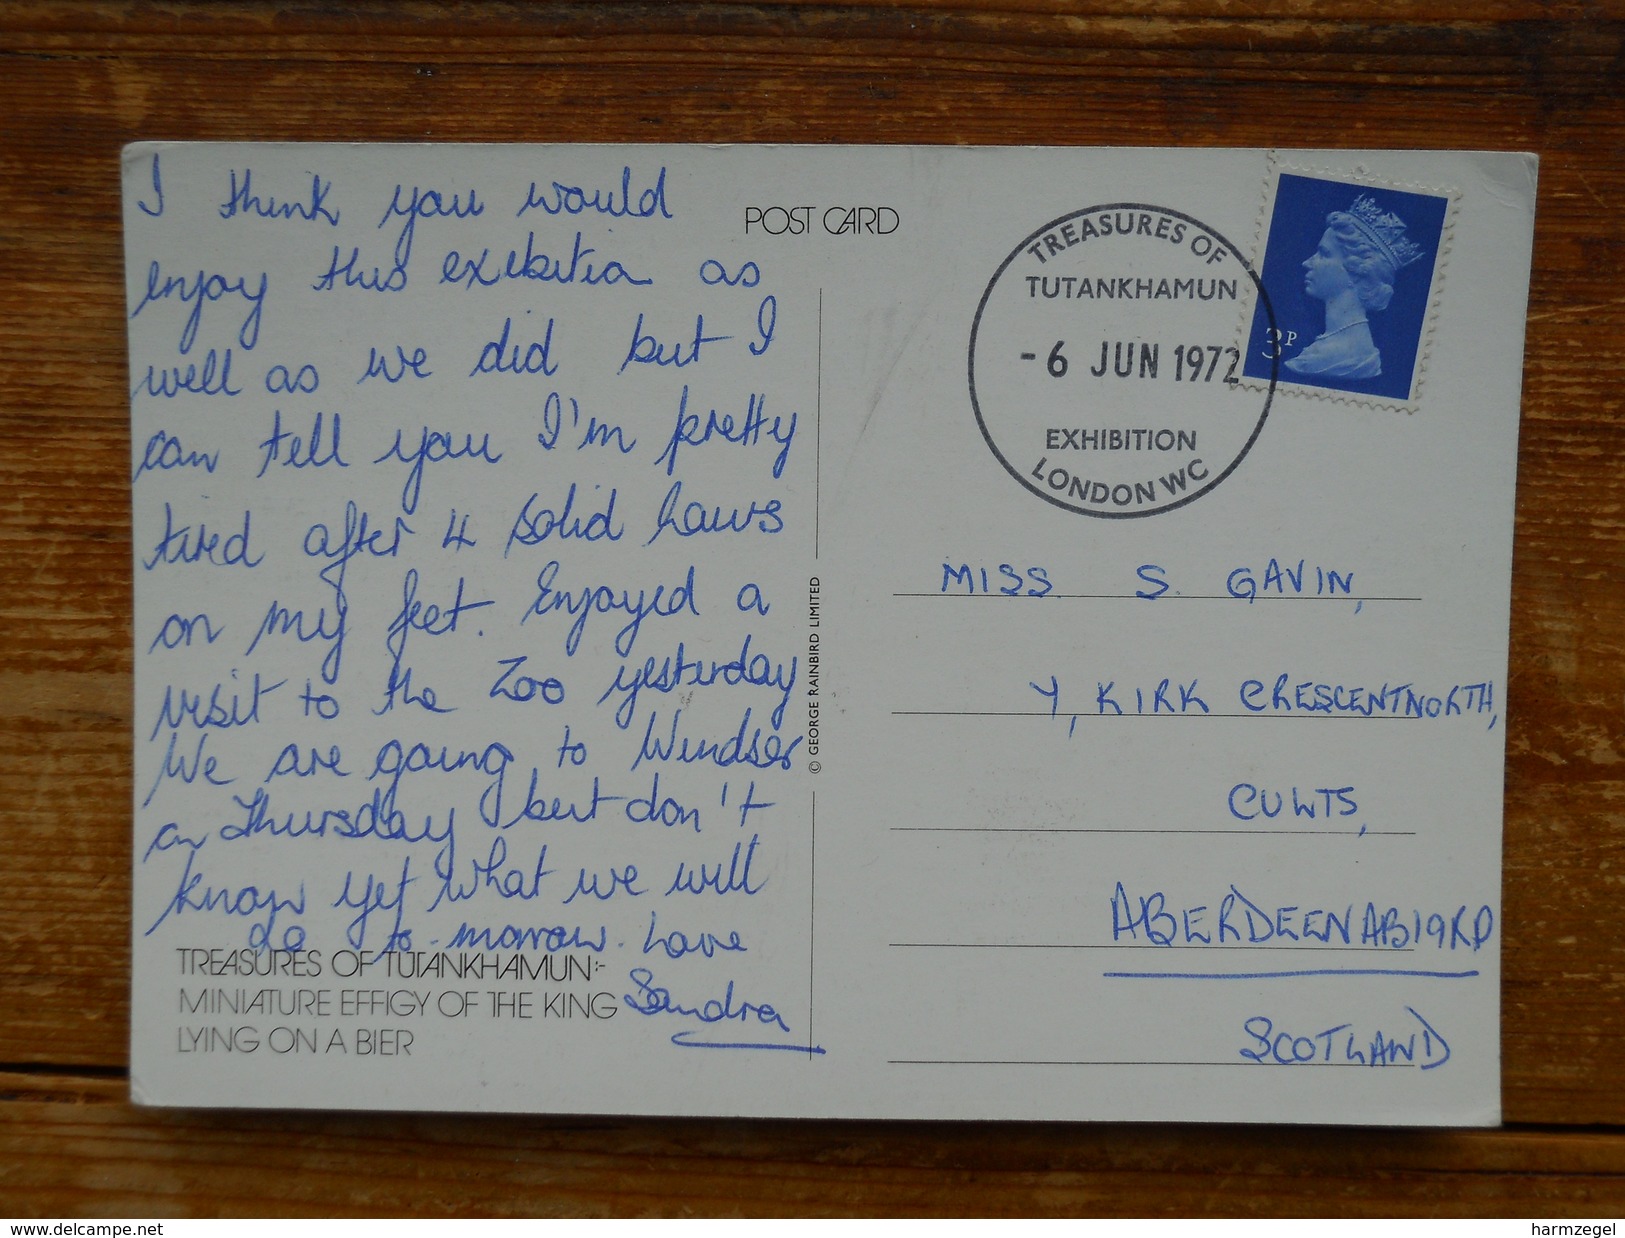 I think you would
enjoy this exebitia as
well as we did but I
can tell you I'm pretty
tired after 4 solid hours
on my feet. Enjoyed a
visit to the Zoo yesterday
We are going to Windser
on Thursday but don't
know yet what we will
do to-morrow. Love
Sandra
TREASURES OF TUTANKHAMUN:-
MINIATURE EFFIGY OF THE KING
LYING ON A BIER
POST CARD
© GEORGE RAINBIRD LIMITED
TREASURES OF
TUTANKHAMUN
-6 JUN 1972
EXHIBITION
LONDON WC
3P
MISS S. GAVIN,
7, KIRK CRESCENT NORTH,
CULTS,
ABERDEEN AB1 9RP
SCOTLAND
www.delcampe.net
harmzegel